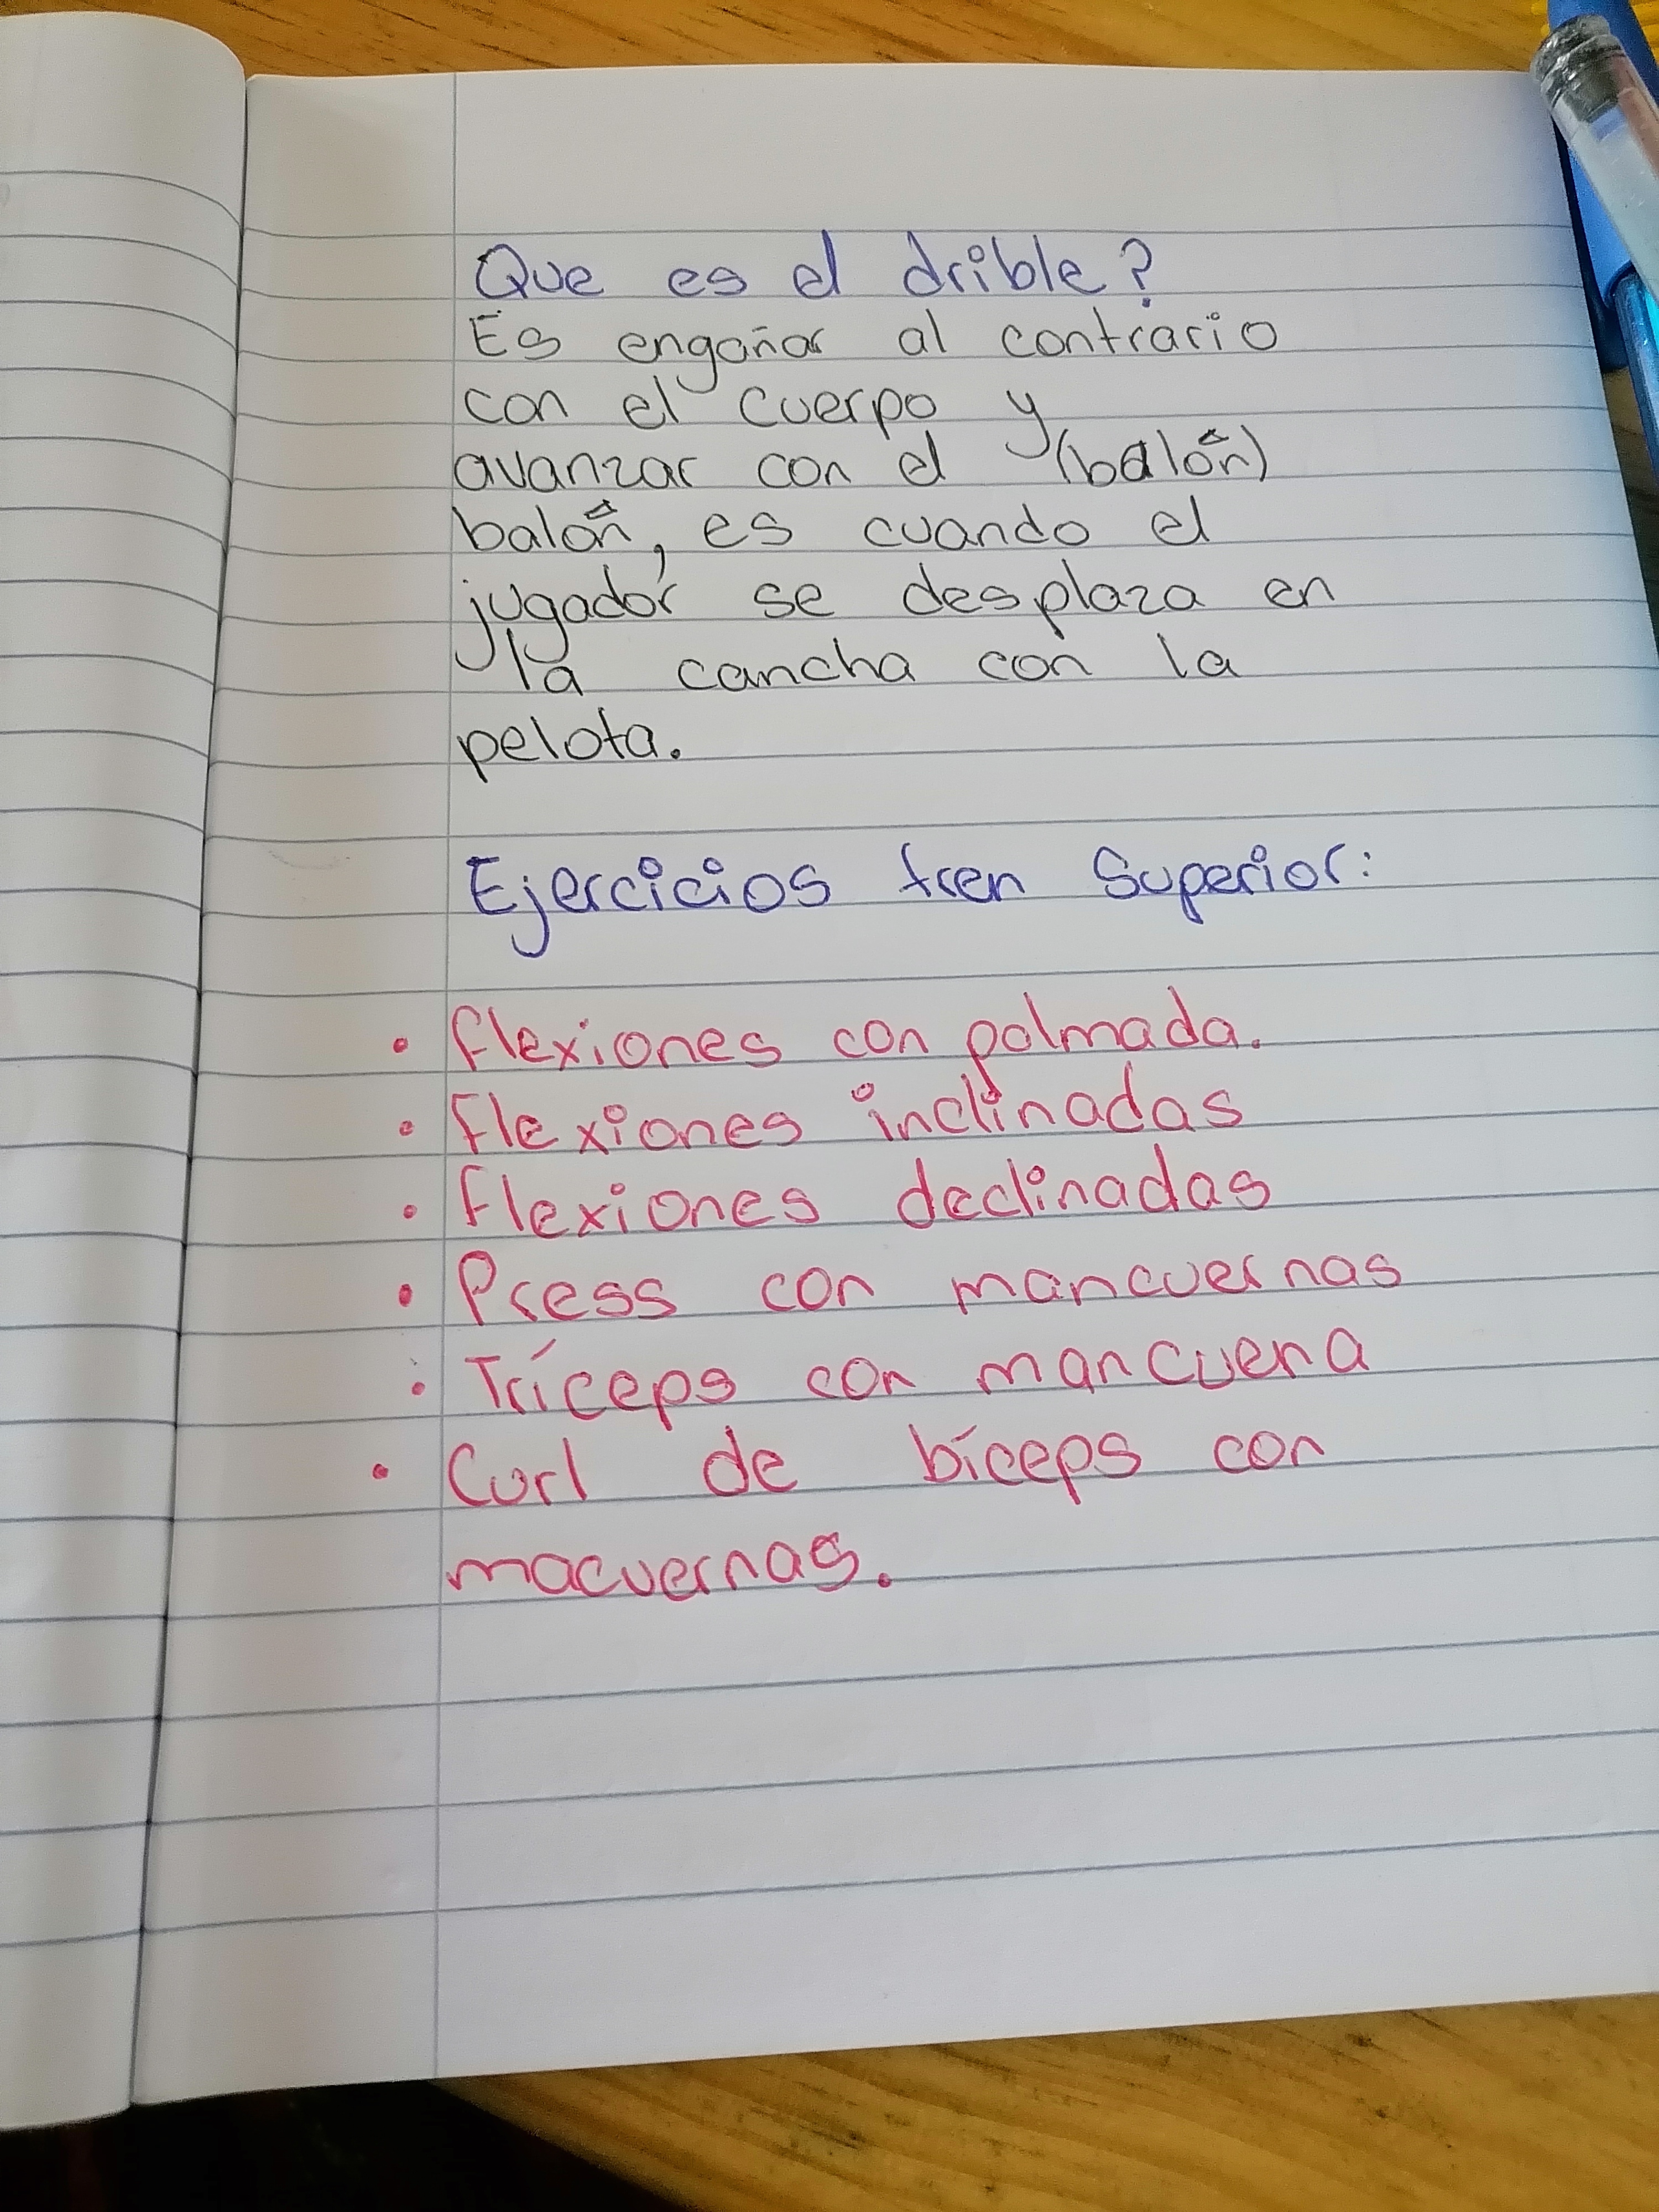 Que es el drible?
Es engañar al contrario
con el cuerpo y
avanzar con el (balón)
balón, es cuando el
jugador se desplaza en
la cancha con la
pelota.
Ejercicios tren Superior:
• flexiones con palmada.
• flexiones inclinadas
• flexiones declinadas
• Press con mancuernas
• Tríceps con mancuerna
• Curl de bíceps con
macuernas.